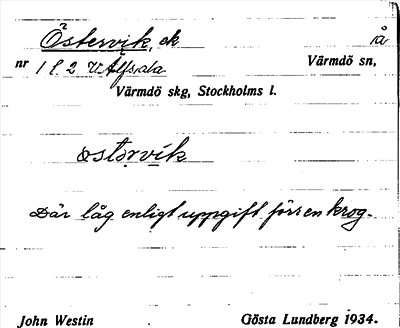 Östervik, ek å
nr 1 l. 2 V. Alfsala Värmdö sn,
Värmdö skg, Stockholms l.
ǝstərvīk
Där låg enligt uppgift förr en krog.
John Westin Gösta Lundberg 1934.